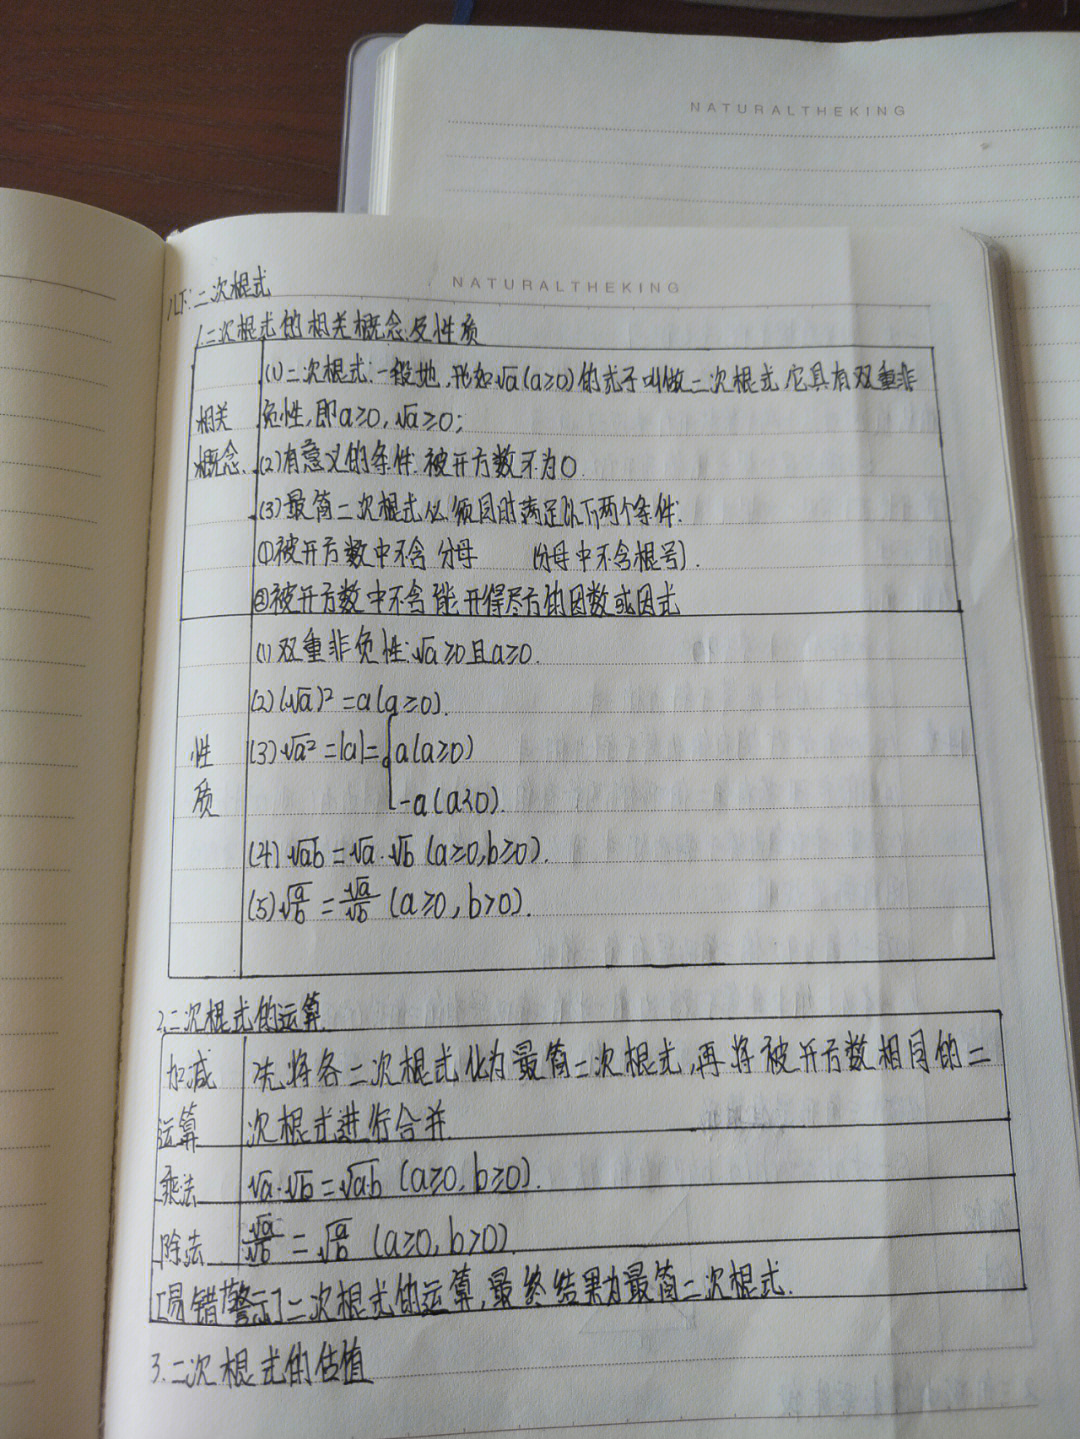 NATURALTHEKING
NATURALTHEKING
八下:二次根式
1.二次根式的相关概念及性质
相关
概念
(1)二次根式:一般地,形如√a(a≥0)的式子叫做二次根式,它具有双重非
负性,即a≥0,√a≥0;
(2)有意义的条件:被开方数不为0.
(3)最简二次根式必须同时满足以下两个条件:
①被开方数中不含分母 (分母中不含根号).
②被开方数中不含能开得尽方的因数或因式
性
质
(1)双重非负性:√a≥0且a≥0.
(2)(√a)²=a(a≥0).
(3)√a²=|a|={a(a≥0)
-a(a<0).
(4)√ab=√a·√b(a≥0,b≥0).
(5)√(a/b)=√a/√b(a≥0,b>0).
2.二次根式的运算
加减
运算
先将各二次根式化为最简二次根式,再将被开方数相同的二
次根式进行合并.
乘法
√a·√b=√a·b(a≥0,b≥0).
除法
√a/√b=√(a/b)(a≥0,b>0)
[易错警示]二次根式的运算,最终结果为最简二次根式.
3.二次根式的估值